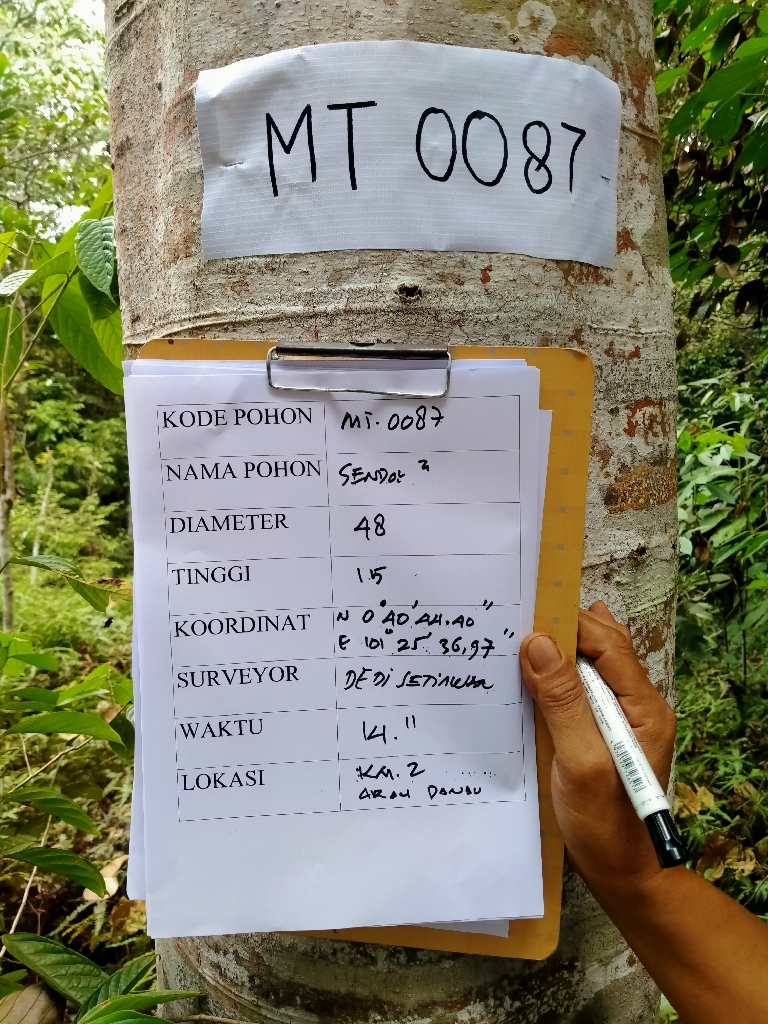 MT 0087
KODE POHON MT. 0087
NAMA POHON
DIAMETER 48
TINGGI 15
KOORDINAT N 0° 40' 44.40"
E 101° 25' 36,97"
SURVEYOR DEDI
WAKTU 14."
LOKASI KM. 2
ARAH DANAU